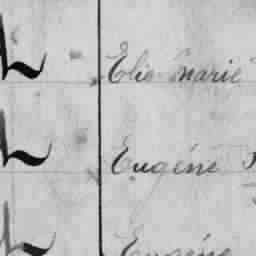 Elie Marie
Eugéne
Eugéne